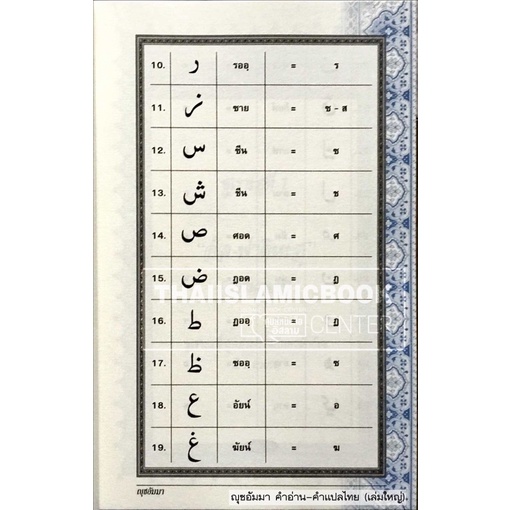 10. ر รออุ = ร
11. ز ซาย = ซ - ส
12. س ซีน = ซ
13. ش ชีน = ช
14. ص ศอด = ศ
15. ض ฎอด = ฎ
16. ط ฏออุ = ฏ
17. ظ ซออุ = ซ
18. ع อัยน์ = อ
19. غ ฆัยน์ = ฆ
THAIISLAMICBOOK
CENTER
ญุซอัมมา
ญุซอัมมา คำอ่าน-คำแปลไทย (เล่มใหญ่)